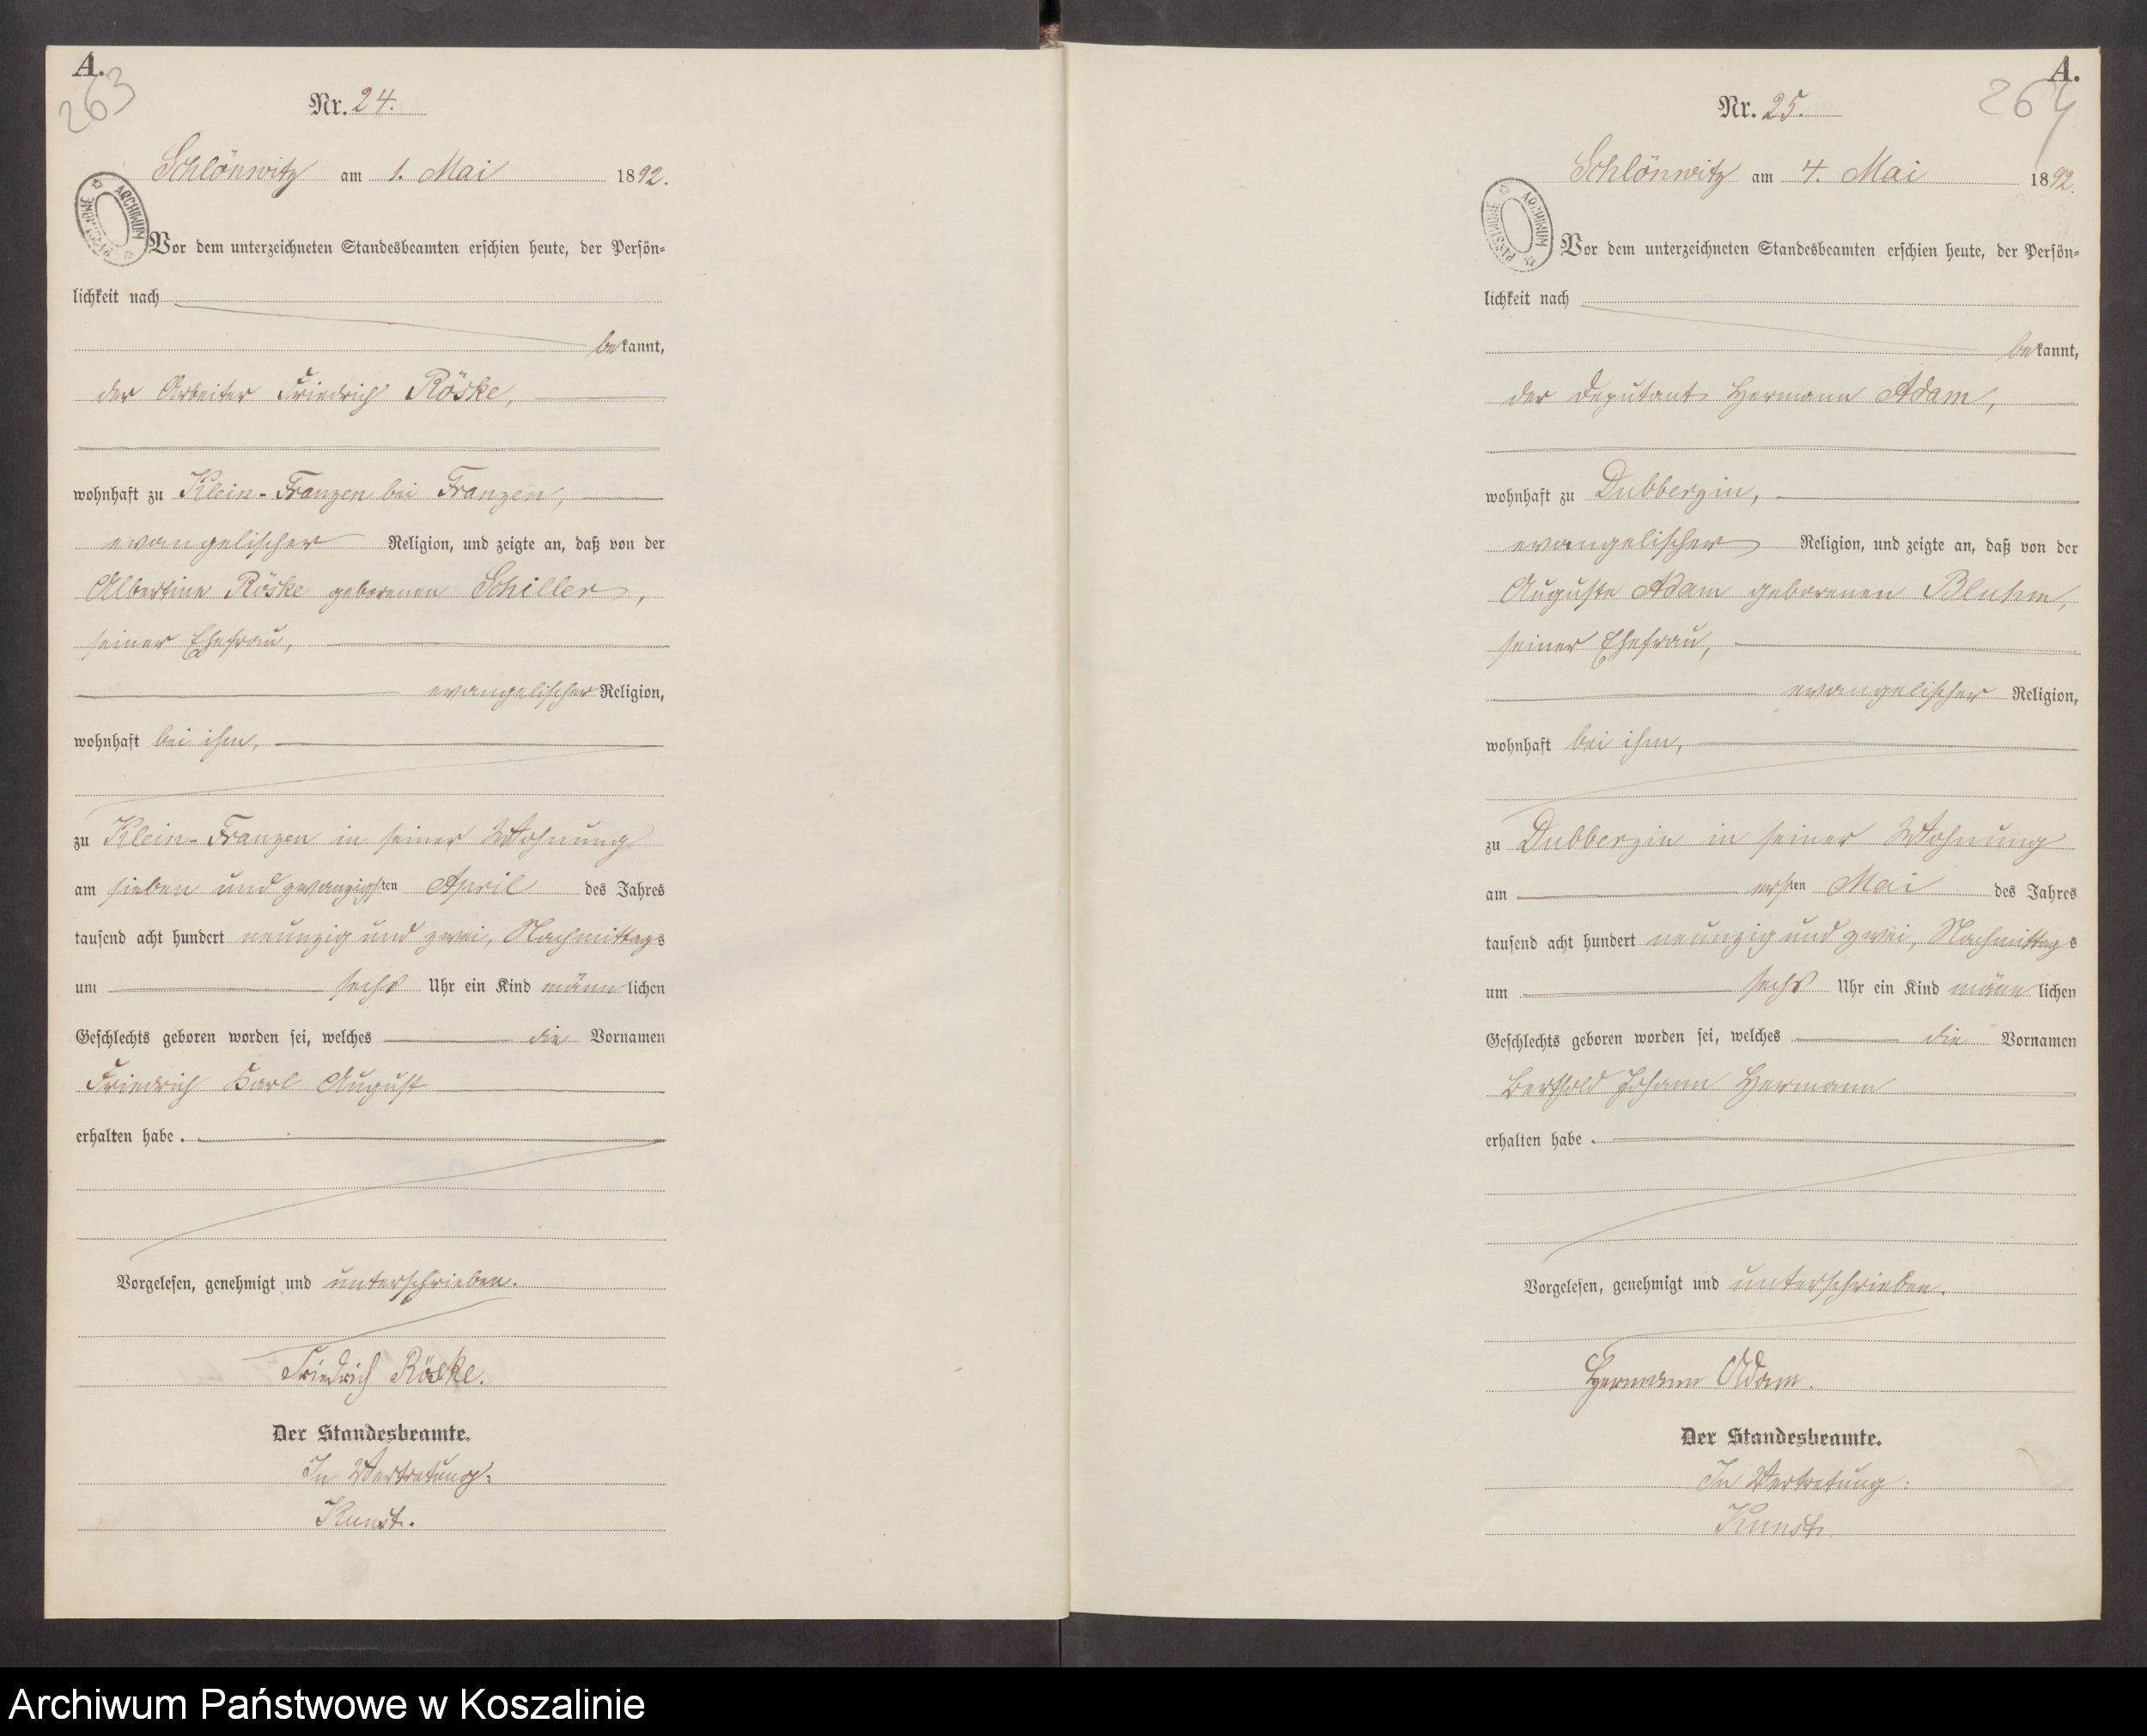 A.
263
Nr. 24.
Schlönwitz am 1. Mai 1892.
Vor dem unterzeichneten Standesbeamten erschien heute, der Persön=
lichkeit nach
bekannt,
der Arbeiter Friedrich Röske,
wohnhaft zu Klein-Franzen bei Franzen,
evangelischer Religion, und zeigte an, daß von der
Albertine Röske geborenen Schiller,
seiner Ehefrau,
evangelischer Religion,
wohnhaft bei ihm,
zu Klein-Franzen in seiner Wohnung
am sieben und zwanzigsten April des Jahres
tausend acht hundert neunzig und zwei, Nachmittags
um sechs Uhr ein Kind männlichen
Geschlechts geboren worden sei, welches die Vornamen
Friedrich Karl August
erhalten habe.
Vorgelesen, genehmigt und unterschrieben.
Friedrich Röske.
Der Standesbeamte.
In Vertretung:
Kunst.
ARCHIWUM PAŃSTWOWE
A.
264
Nr. 25.
Schlönwitz am 4. Mai 1892.
Vor dem unterzeichneten Standesbeamten erschien heute, der Persön=
lichkeit nach
bekannt,
der Deputant Hermann Adam,
wohnhaft zu Dubberzin,
evangelischer Religion, und zeigte an, daß von der
Auguste Adam geborenen Bluhm,
seiner Ehefrau,
evangelischer Religion,
wohnhaft bei ihm,
zu Dubberzin in seiner Wohnung
am ersten Mai des Jahres
tausend acht hundert neunzig und zwei, Nachmittags
um sechs Uhr ein Kind männlichen
Geschlechts geboren worden sei, welches die Vornamen
Berthold Johann Hermann
erhalten habe.
Vorgelesen, genehmigt und unterschrieben.
Hermann Adam.
Der Standesbeamte.
In Vertretung:
Kunst.
ARCHIWUM PAŃSTWOWE
Archiwum Państwowe w Koszalinie